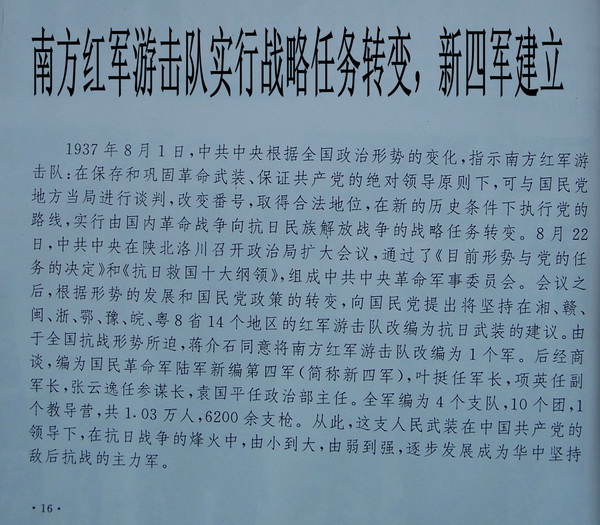 南方红军游击队实行战略任务转变，新四军建立
1937年8月1日，中共中央根据全国政治形势的变化，指示南方红军游
击队：在保存和巩固革命武装、保证共产党的绝对领导原则下，可与国民党
地方当局进行谈判，改变番号，取得合法地位，在新的历史条件下执行党的
路线，实行由国内革命战争向抗日民族解放战争的战略任务转变。8月22
日，中共中央在陕北洛川召开政治局扩大会议，通过了《目前形势与党的任
务的决定》和《抗日救国十大纲领》，组成中共中央革命军事委员会。会议之
后，根据形势的发展和国民党政策的转变，向国民党提出将坚持在湘、赣、
闽、浙、鄂、豫、皖、粤8省14个地区的红军游击队改编为抗日武装的建议。由
于全国抗战形势所迫，蒋介石同意将南方红军游击队改编为1个军。后经商
谈，编为国民革命军陆军新编第四军（简称新四军），叶挺任军长，项英任副
军长，张云逸任参谋长，袁国平任政治部主任。全军编为4个支队，10个团，1
个教导营，共1.03万人，6200余支枪。从此，这支人民武装在中国共产党的
领导下，在抗日战争的烽火中，由小到大，由弱到强，逐步发展成为华中坚持
敌后抗战的主力军。
·16·